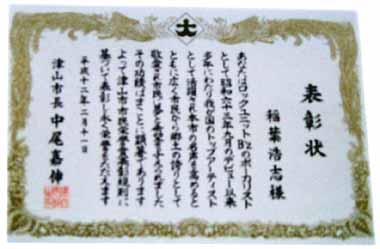 表彰状
稲葉浩志様
あなたはロックユニットB'zのボーカリスト
として昭和六十三年九月のデビュー以来
多年にわたり我が国のトップアーティスト
として活躍され本市の名声を高めると
ともに広く市民から郷土の誇りとして
敬愛され市民に夢と希望を与えられました
その功績はまことに顕著であります
よって津山市市民栄誉賞表彰規則に
基づいて表彰し永く栄誉をたたえます
平成十二年二月十一日
津山市長 中尾嘉伸